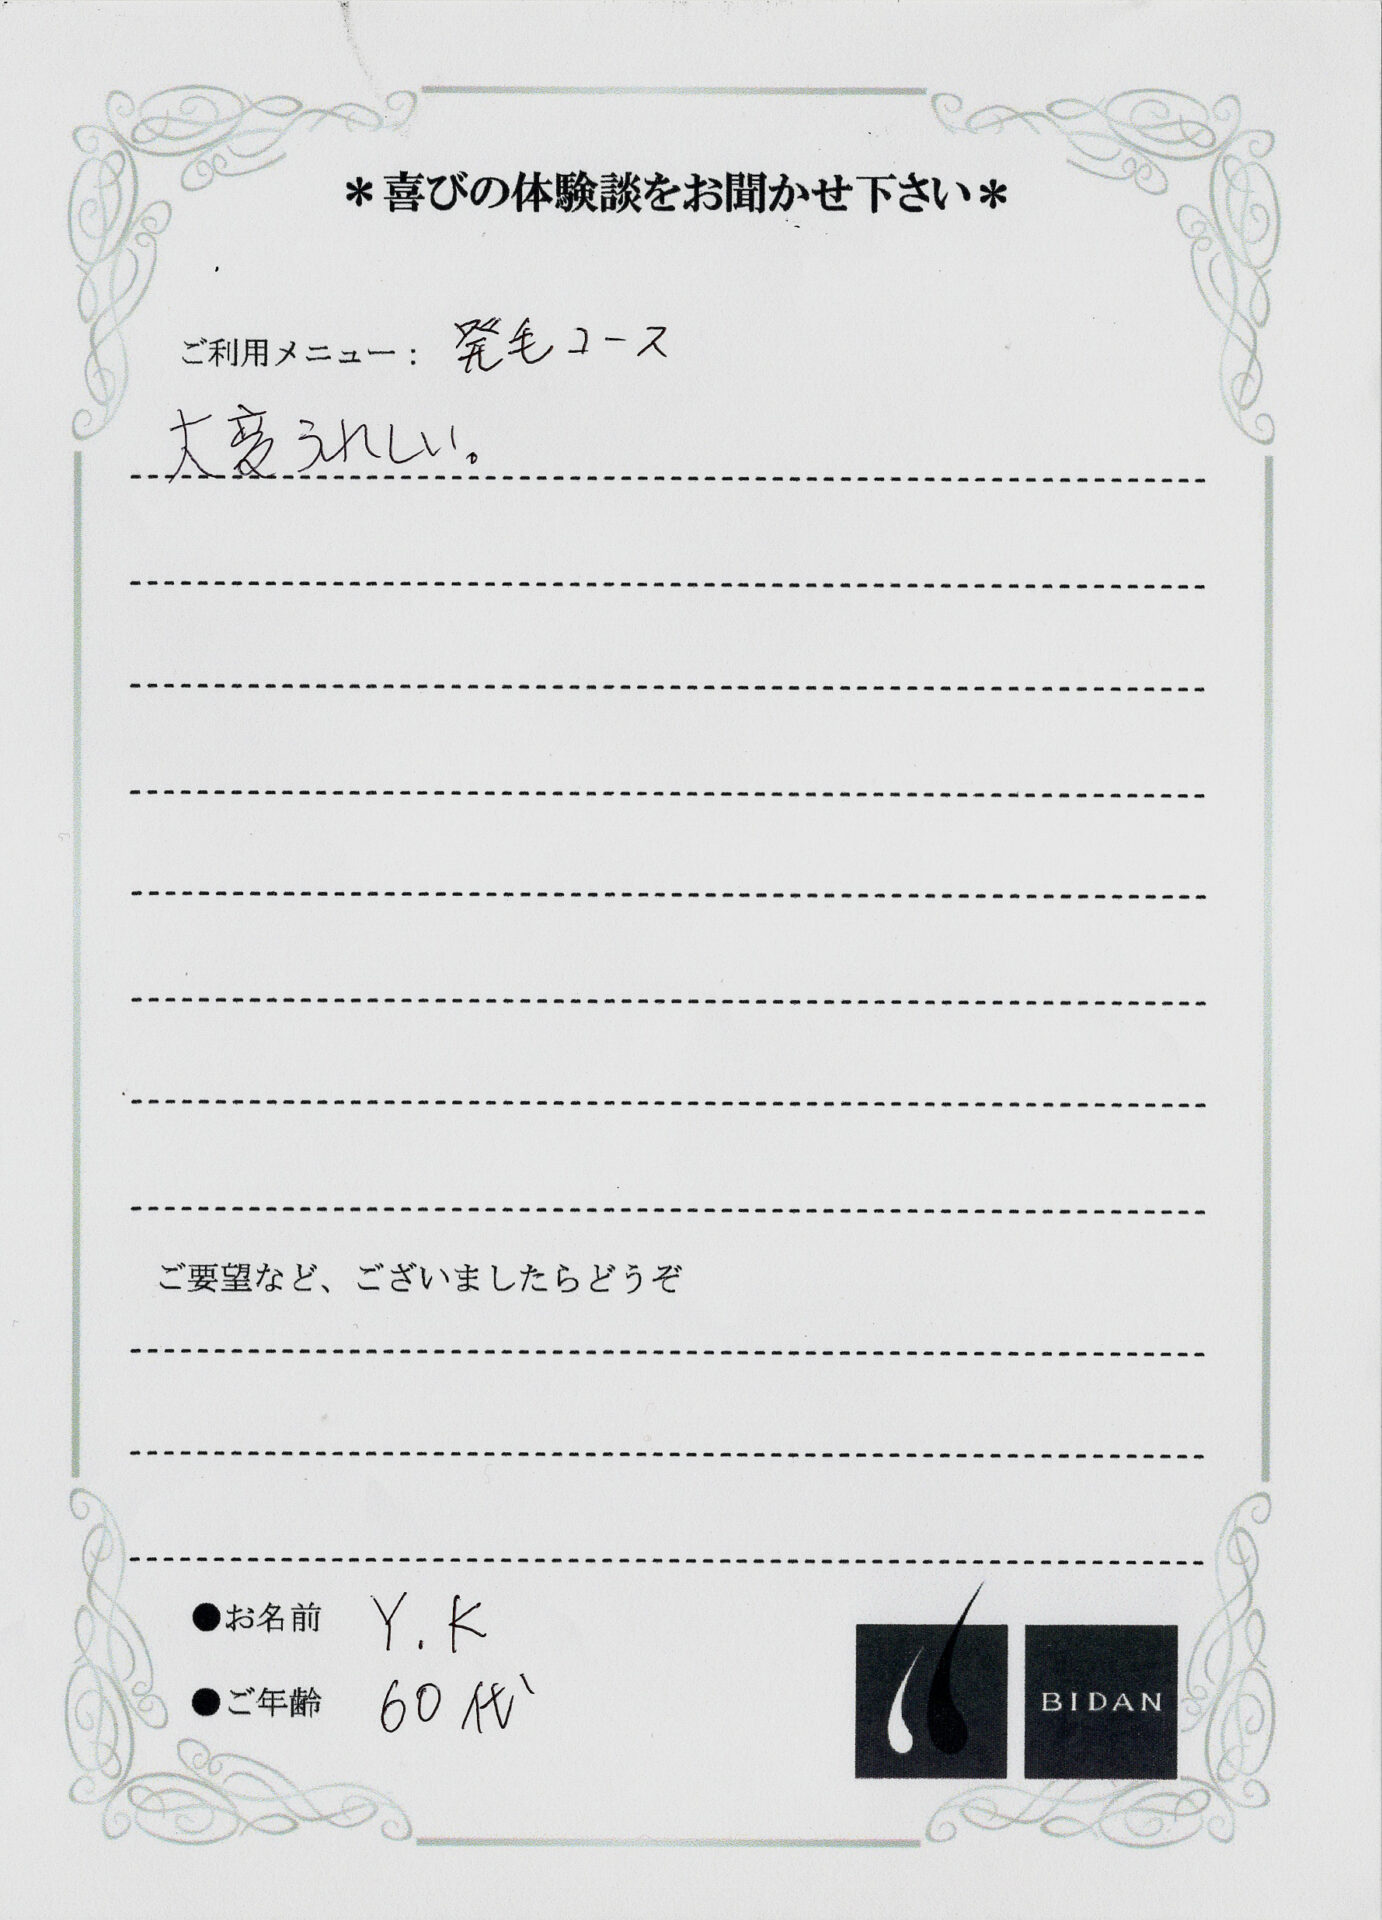 ＊喜びの体験談をお聞かせ下さい＊
ご利用メニュー： 発毛コース
大変うれしい。
ご要望など、ございましたらどうぞ
●お名前 Y.K
●ご年齢 60代
BIDAN